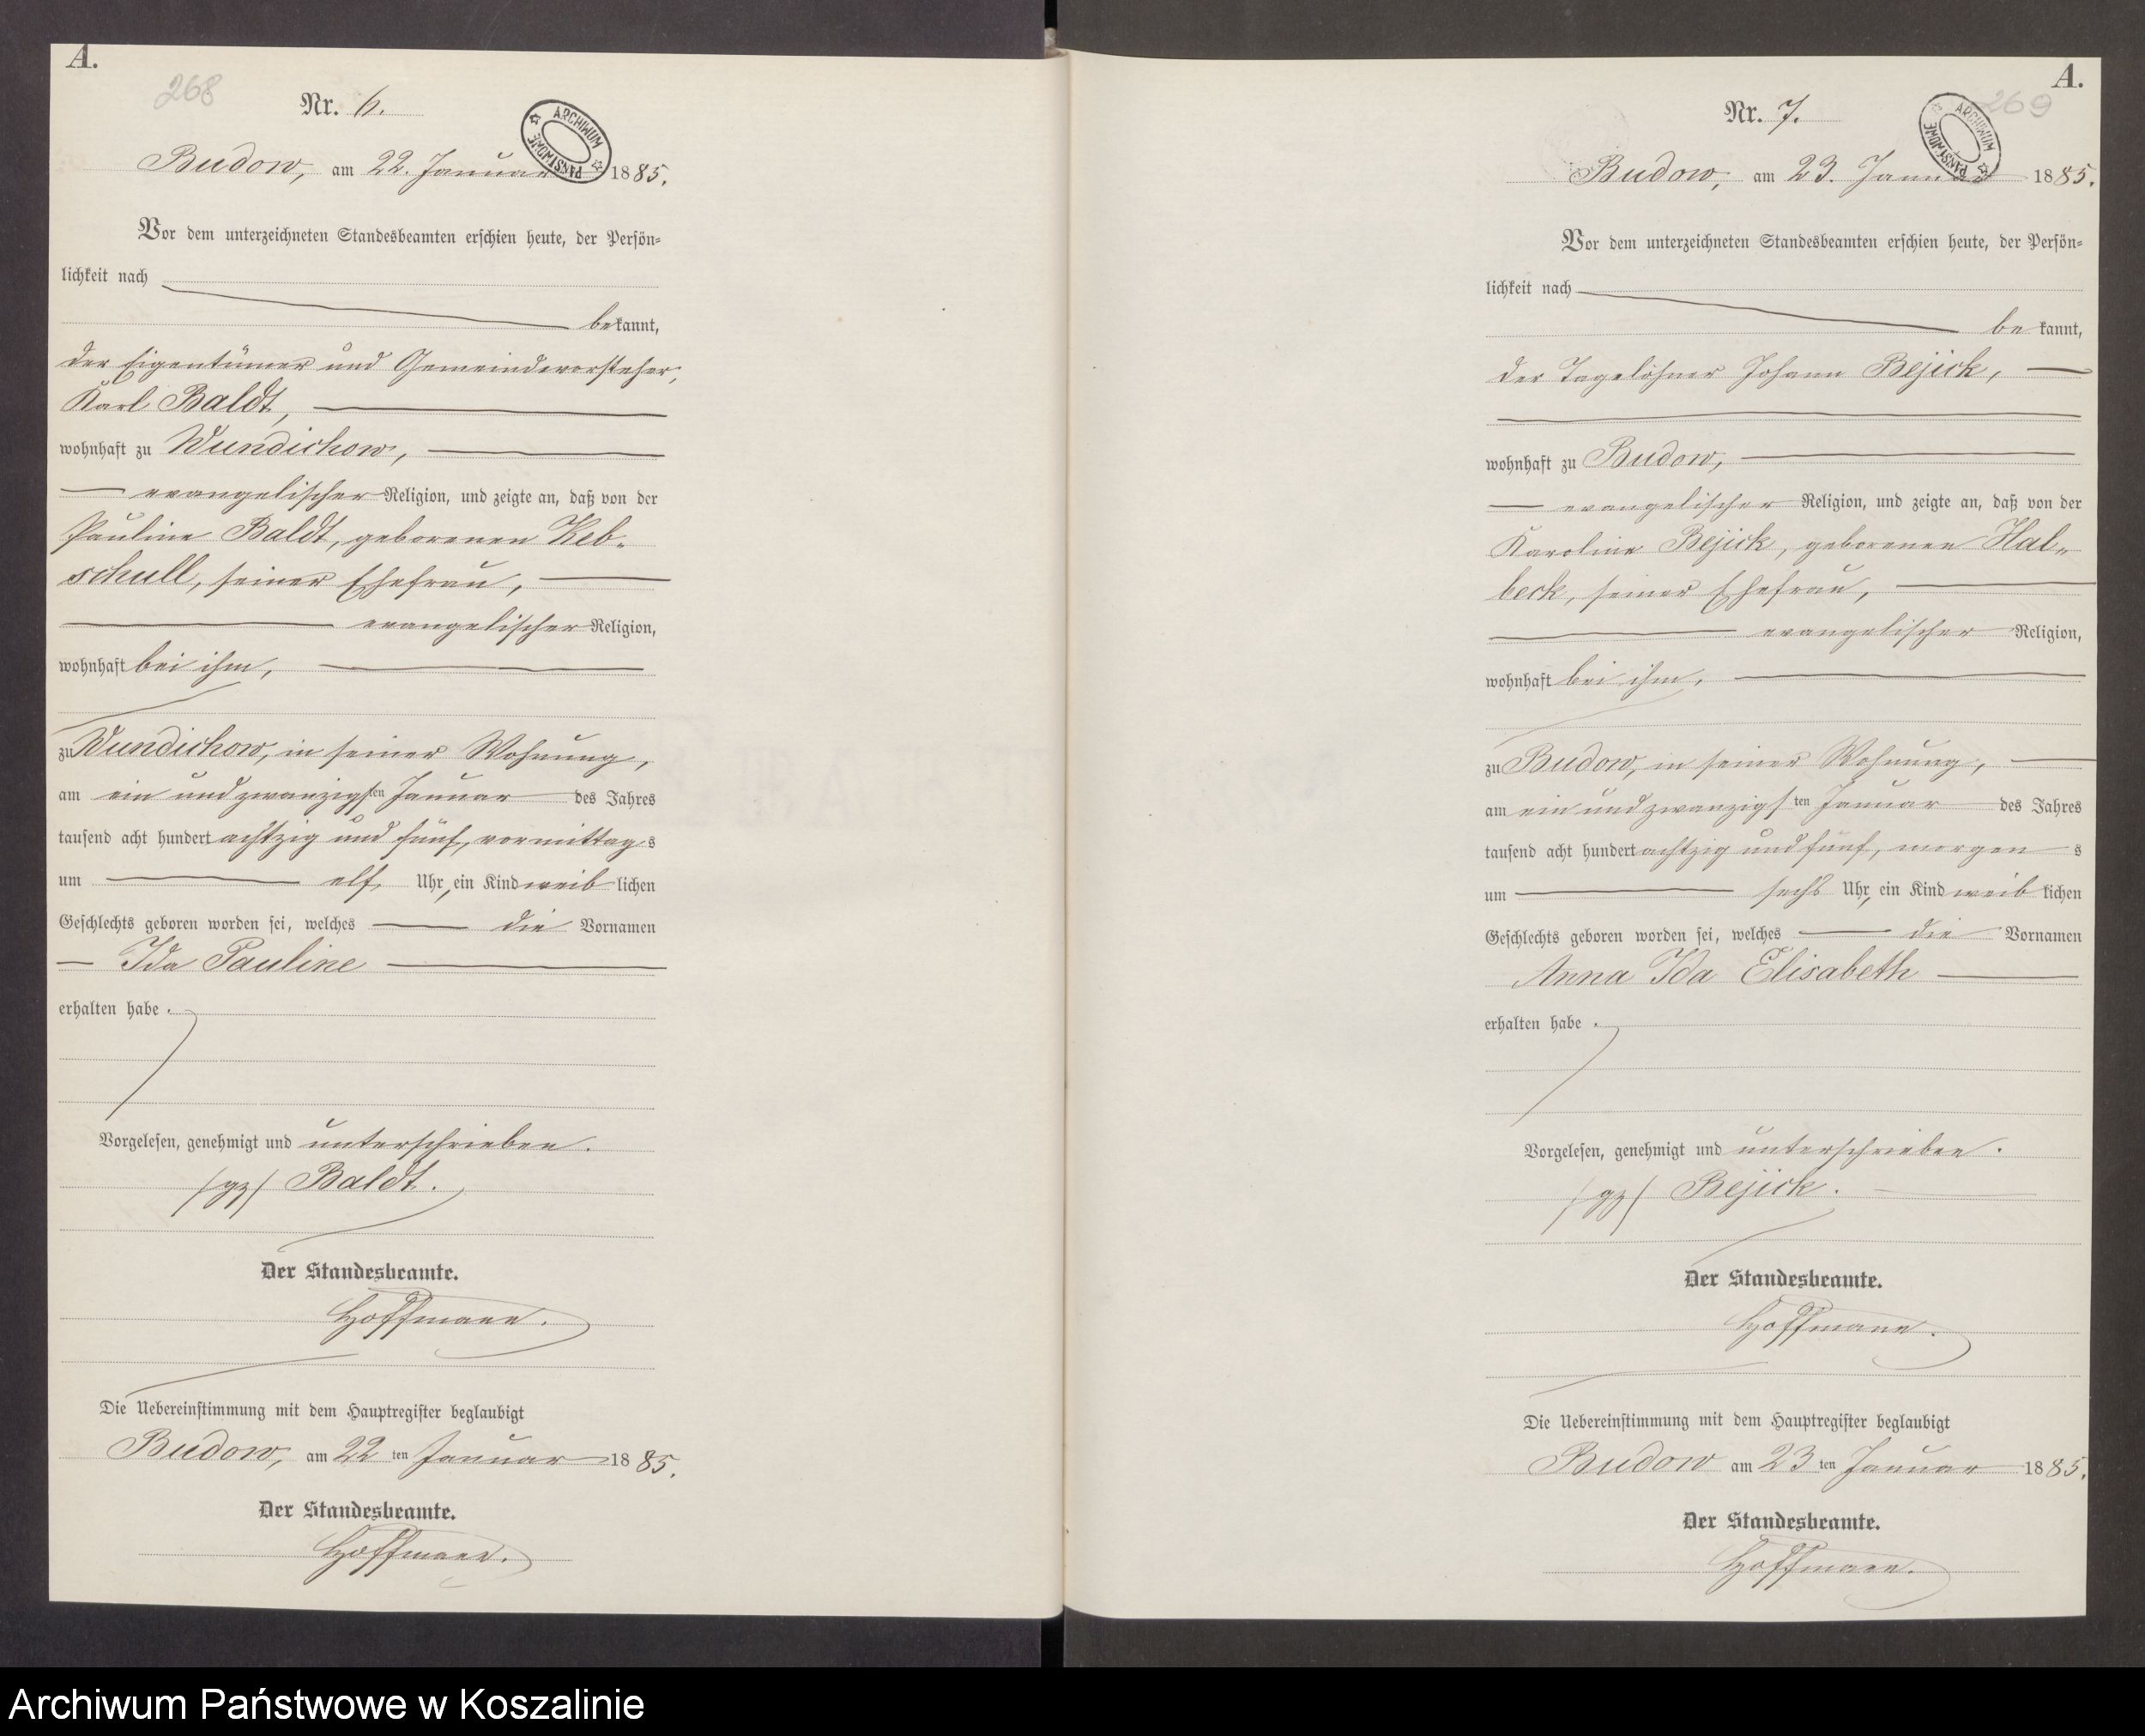 A.
268
Nr. 6.
ARCHIWUM PAŃSTWOWE
Budow, am 22. Januar 1885.
Vor dem unterzeichneten Standesbeamten erschien heute, der Persön-
lichkeit nach
bekannt,
der Eigentümer und Gemeindevorsteher,
Karl Baldt,
wohnhaft zu Wundichow,
evangelischer Religion, und zeigte an, daß von der
Pauline Baldt, geborenen Reb-
schull, seiner Ehefrau,
evangelischer Religion,
wohnhaft bei ihm,
zu Wundichow, in seiner Wohnung,
am ein und zwanzigsten Januar des Jahres
tausend acht hundert achtzig und fünf, vormittags
um elf Uhr, ein Kind weiblichen
Geschlechts geboren worden sei, welches die Vornamen
Ida Pauline
erhalten habe.
Vorgelesen, genehmigt und unterschrieben.
/gz/ Baldt.
Der Standesbeamte.
Hoffmann.
Die Uebereinstimmung mit dem Hauptregister beglaubigt
Budow, am 22ten Januar 1885.
Der Standesbeamte.
Hoffmann.
A.
269
Nr. 7.
ARCHIWUM PAŃSTWOWE
Budow, am 23. Januar 1885.
Vor dem unterzeichneten Standesbeamten erschien heute, der Persön-
lichkeit nach
bekannt,
der Tagelöhner Johann Bejick,
wohnhaft zu Budow,
evangelischer Religion, und zeigte an, daß von der
Karoline Bejick, geborenen Hal-
beck, seiner Ehefrau,
evangelischer Religion,
wohnhaft bei ihm,
zu Budow, in seiner Wohnung,
am ein und zwanzigsten Januar des Jahres
tausend acht hundert achtzig und fünf, morgens
um sechs Uhr, ein Kind weiblichen
Geschlechts geboren worden sei, welches die Vornamen
Anna Ida Elisabeth
erhalten habe.
Vorgelesen, genehmigt und unterschrieben.
/gz/ Bejick.
Der Standesbeamte.
Hoffmann.
Die Uebereinstimmung mit dem Hauptregister beglaubigt
Budow am 23ten Januar 1885.
Der Standesbeamte.
Hoffmann.
Archiwum Państwowe w Koszalinie